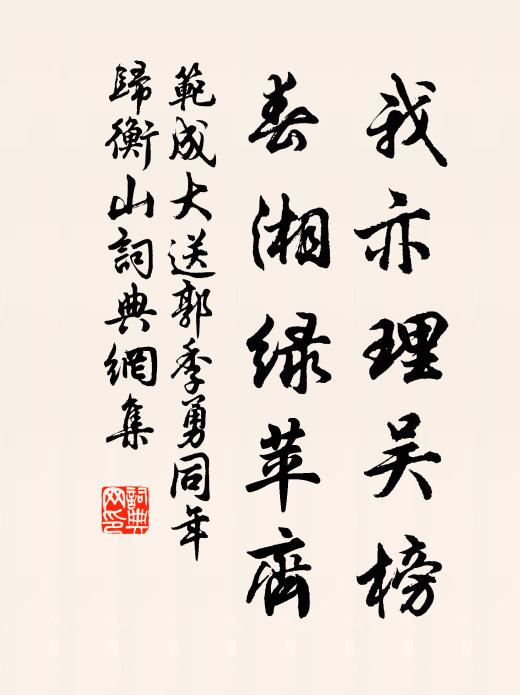 我亦理吴榜
春湘緑苹齊
範成大送郭季勇同年
歸衡山詞典網集
詞典
网印